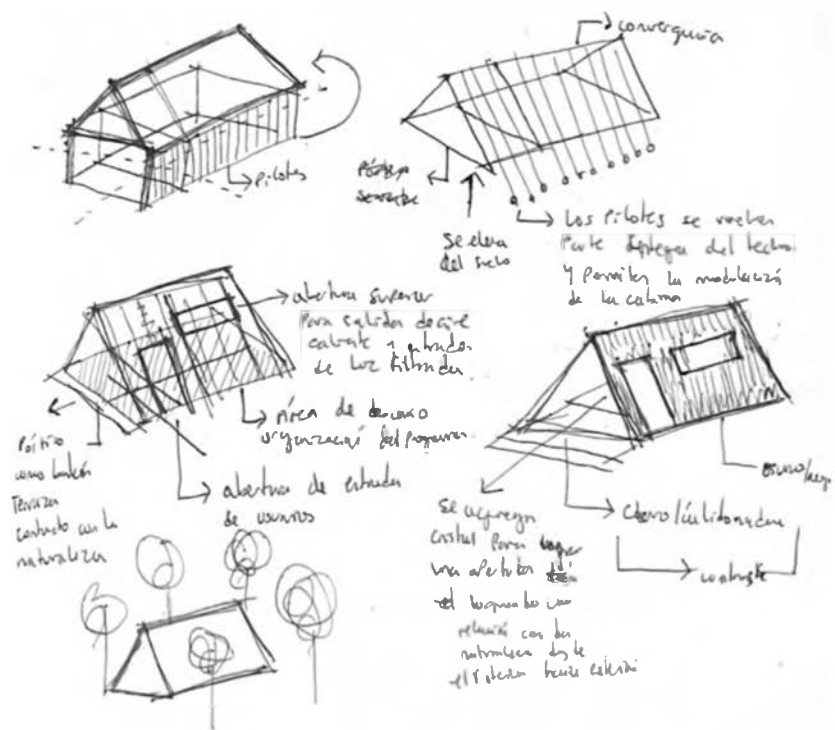 Pilotes
convergencia
Pórtico
Se eleva
del suelo
Los Pilotes se vuelven
Parte integra del techo
y permiten la modulación
de la
abertura superior
Para salida de aire
caliente y entrada
de luz filtrada
Área de descanso
organización del programa
Pórtico
como balcón
Terraza
contacto con la
naturaleza
abertura de entrada
de usuarios
Se agrega
cristal Para lograr
una apertura
el
relación con la
naturaleza desde
el interior hacia exterior
claro/
oscuro/
contraste